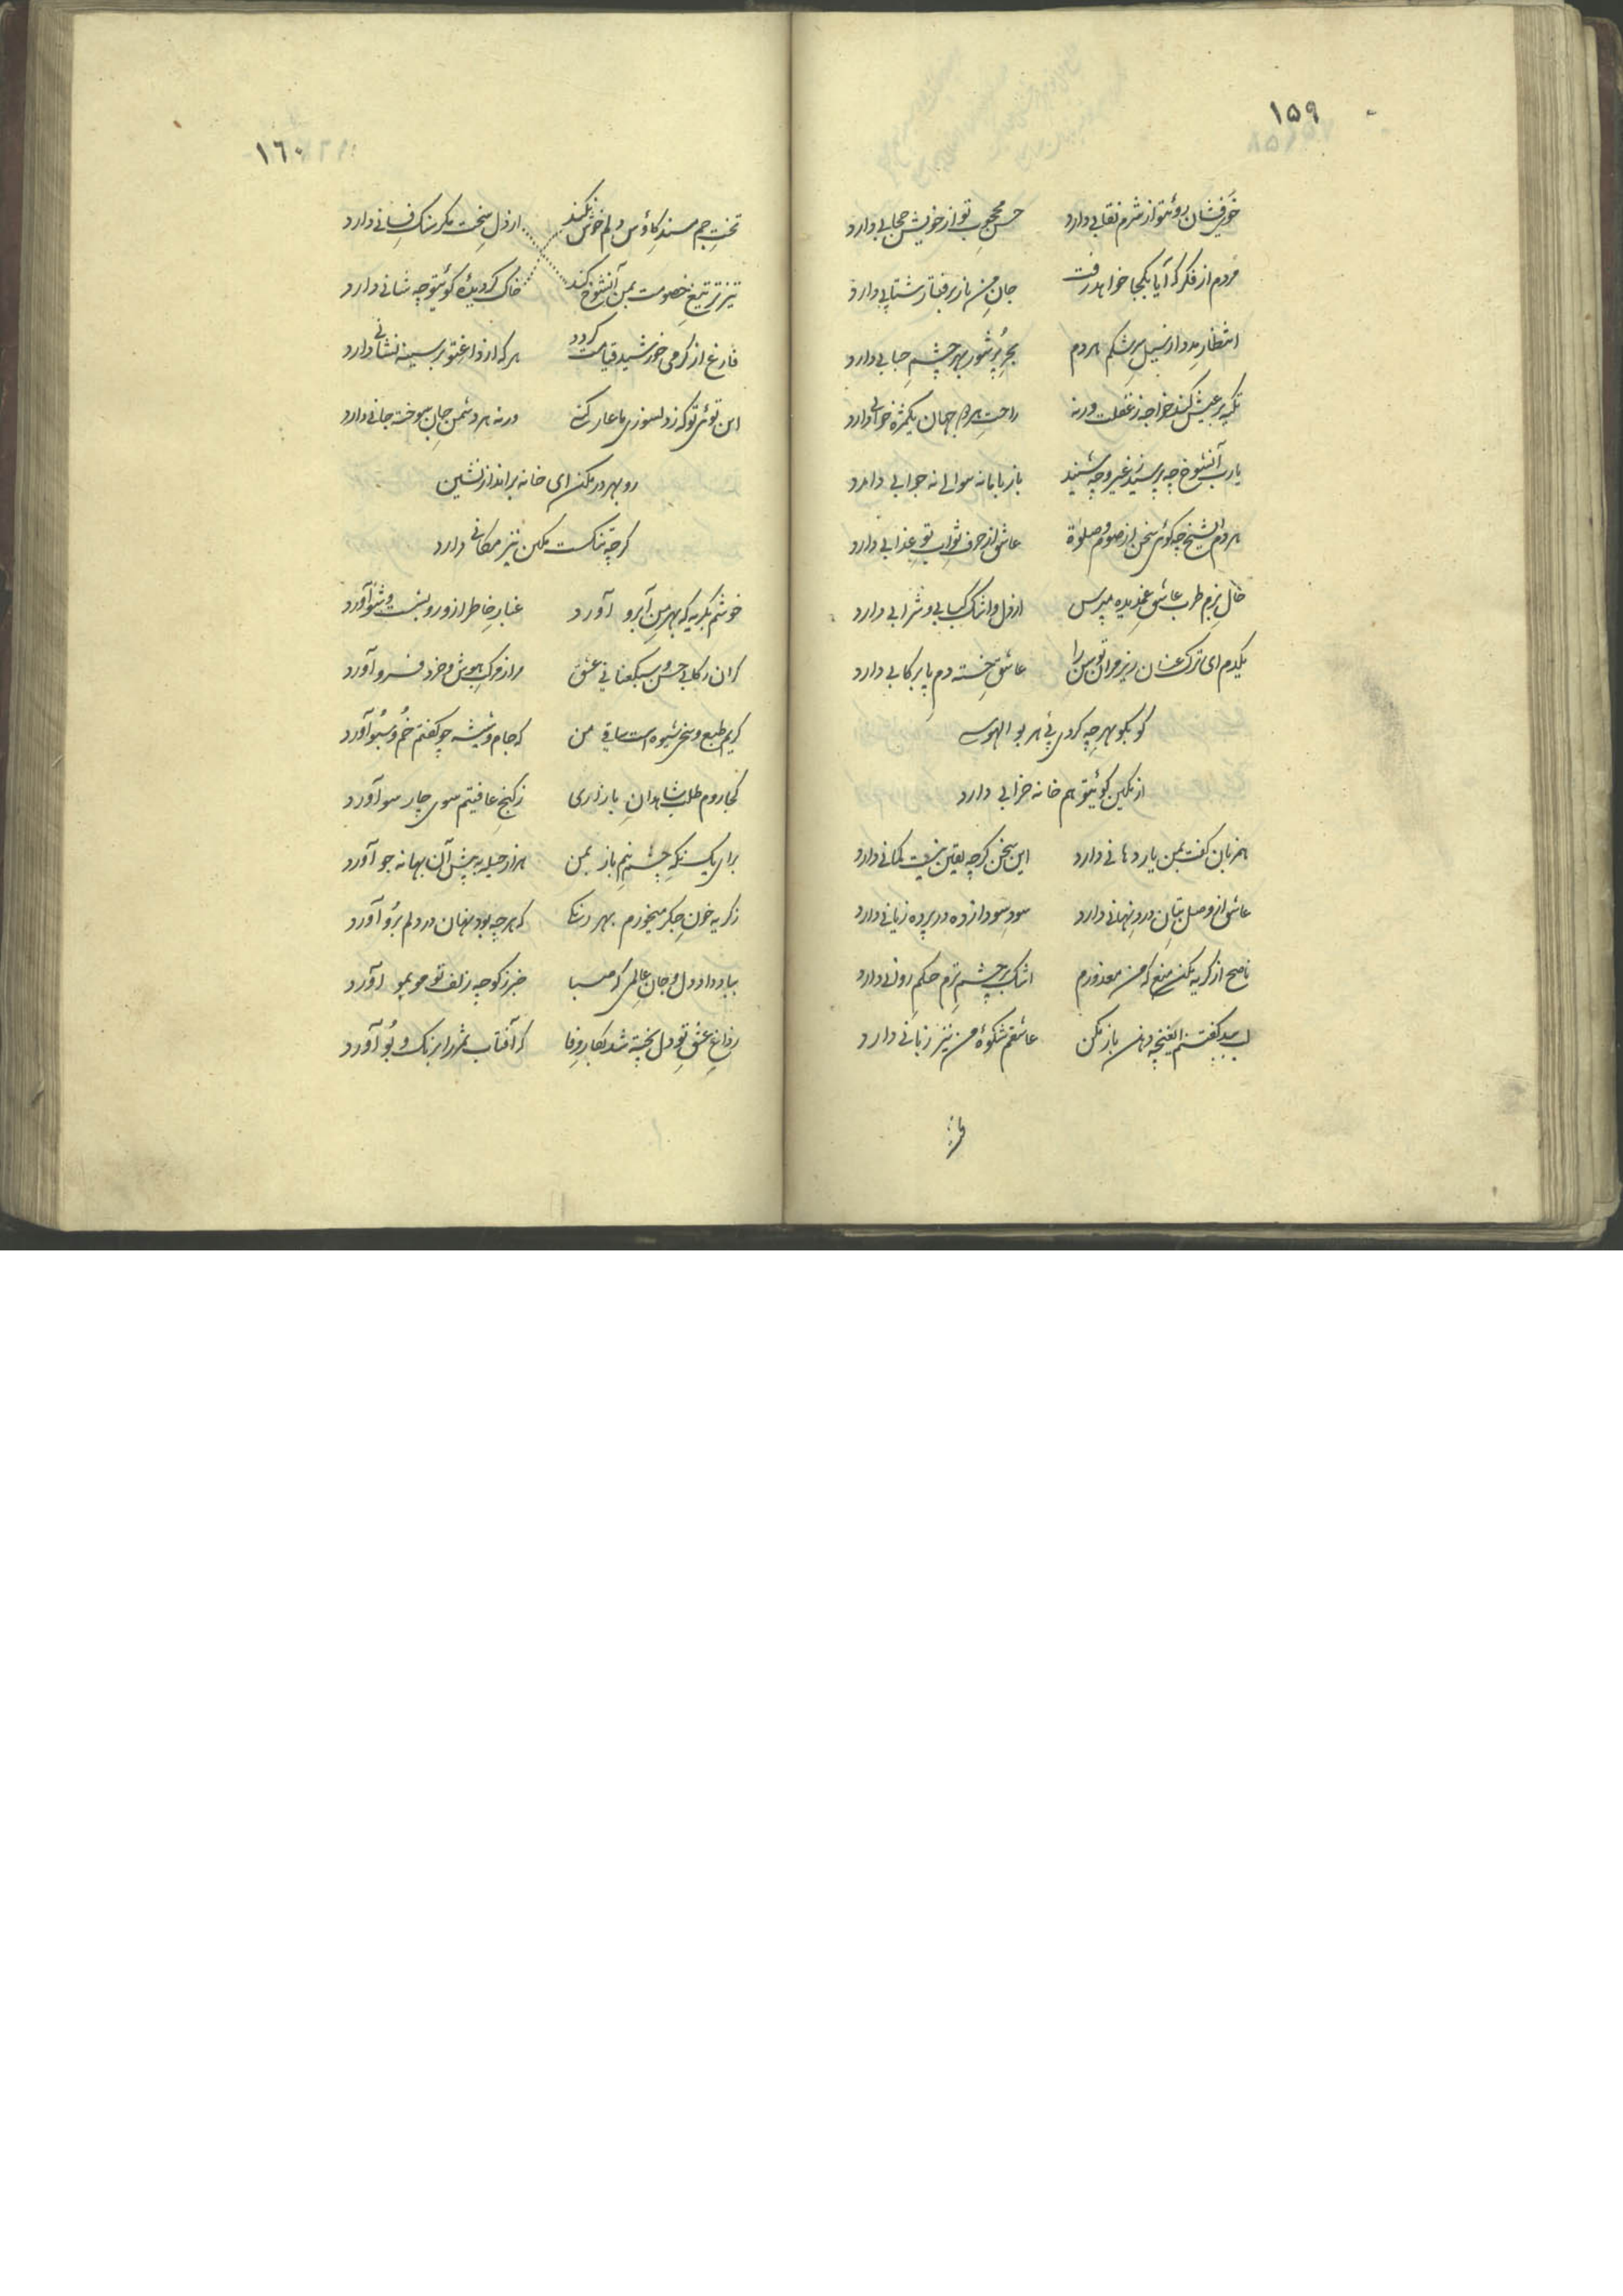 ۱۵۹
خوی‌فشان روئتو از شرم نقابی دارد حسن محجوب تو از خویش حجابی دارد
مردم از فکر که آیا بکجا خواهد رفت جان من باز برفتار شتابی دارد
انتظار مدد از سیل سرشکم هر دم بحر پرشور بهر چشم حبابی دارد
تکیه بر عیش کند خواجه ز غفلت ورنه راحت مردم جهان یکمژه خوابی دارد
یارب آنشوخ چه پرسید ز غیر و چه شنید باز با ما نه سوالی نه جوابی دارد
هر دم ایشیخ چه کوئی سخن از صوم و صلوة عاشق از حرف ثواب تو عذابی دارد
حال بزم طرب عاشق غمدیده مپرس از دل و اشک کبابی و شرابی دارد
یکدم ای ترک عنان ریز مران توسن را عاشق خسته دم پا برکابی دارد
کو بکو بهر چه کردی پی هر بو الهوسی
از مکین کوئیتو هم خانه خرابی دارد
همزبان کفت بمن یار دهانی دارد این سخن کرچه یقین نیست کمانی دارد
عاشق از وصل بتان درد نهانی دارد سود سودازده در پرده زیانی دارد
ناصح از کریه مکن منع که من معذورم اشک بر چشم ترم حکم روانی دارد
لب ببد کفتنم ایغنچه دهن باز مکن عاشقم شکوهٔ من نیز زبانی دارد
۱۶۰
تخت جم مسند کاؤس دلم خوش نکند از دل سخت مکر سنک فسانی دارد
تیزتر تیغ خصومت بمن آنشوخ کند خاک کردیدهٔ کوئیتو چه شانی دارد
فارغ از کرمی خورشید قیامت کردد هر که از داغ تو بر سینه نشانی دارد
این توئی تو که ز دلسوزی ما عار کنی ورنه هر دشمن جان سوخته جانی دارد
رو بهر در مکن ای خانه برانداز نشین
کرچه تنکست مکین نیز مکانی دارد
خوشم بکریه که بهر من آبرو آورد غبار خاطر از و رو بشست و شو آورد
کران رکابی حسن و سبکعنانی عشق مرا ز مرکب هوش و خرد فرو آورد
کریم طبع و سخی شیوه است ساقی من که جام و شیشه چو کفتم خم و سبو آورد
کجا روم طلب شاهدان بازاری ز کنج عافیتم سوی چار سو آورد
برای یک نکه چشم نیم باز بمن هزار حیله به پیش آن بهانه جو آورد
ز کریه خون جکر میخورم بهر که هر چه بود نهان در دلم برو آورد
بباد داد دل و جان عالمی که صبا خبر ز کوچه زلف تو مو بمو آورد
ز داغ عشق تو دل پخته شد بکار وفا که آفتاب ثمر را برنک و بو آورد